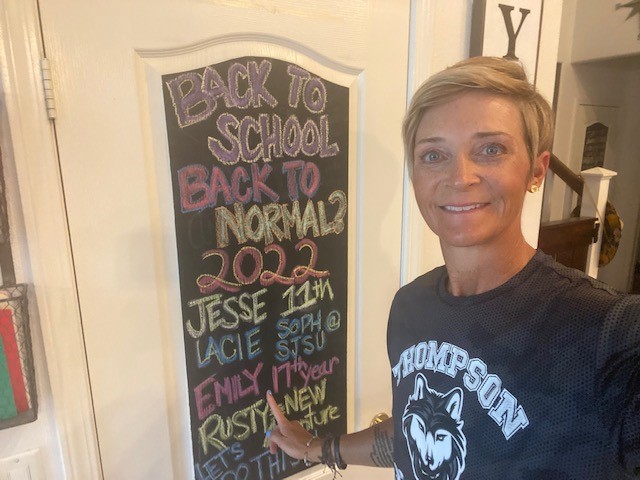 BACK TO
SCHOOL
BACK TO
NORMAL?
2022
JESSE 11th
LACIE SOPH @
SJSU
EMILY 17th year
RUSTY NEW
LET'S
THIS
Y
THOMPSON